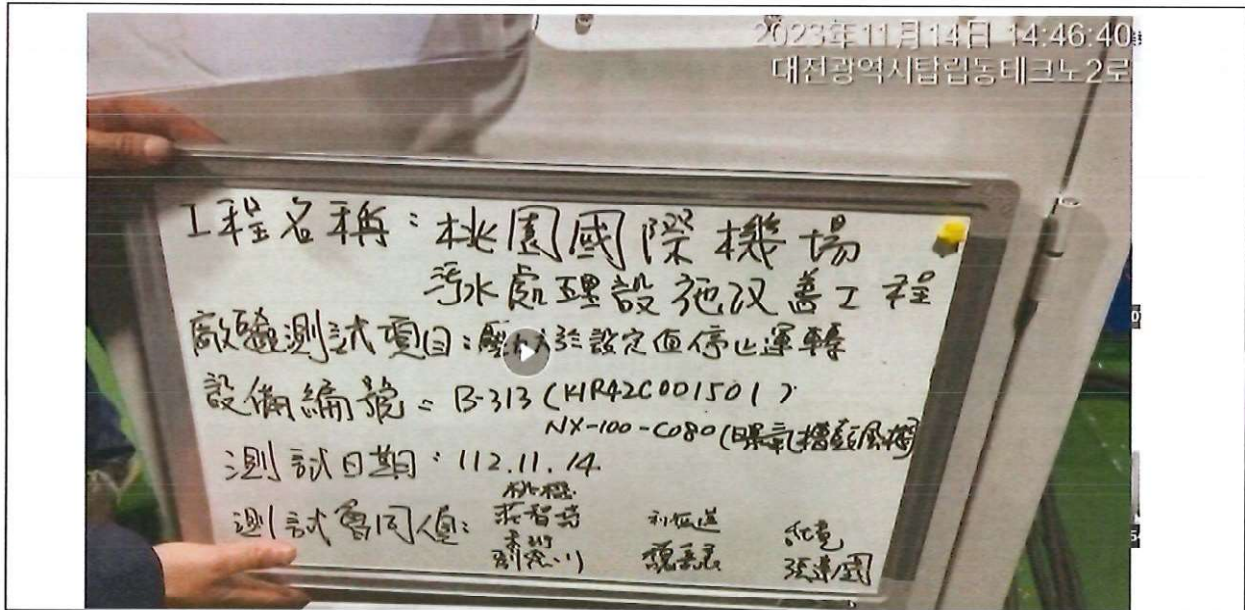 2023年11月14日 14:46:40
대전광역시탑립동테크노2로
工程名稱：桃園國際機場
污水處理設施改善工程
廠驗測試項目：壓力 於設定值停止運轉
設備編號：B-313 (K1R42C001501)
NX-100-C080 (曝氣槽鼓風機)
測試日期：112.11.14.
測試會同人員：
桃機